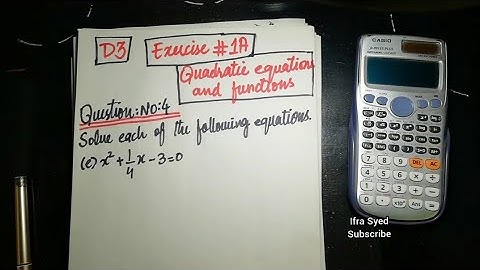 D3
Exercise #1A
Quadratic equation
and functions
Question:No:4
Solve each of the following equations.
(e) x² + 1/4 x - 3 = 0
CASIO
DEL AC
Ifra Syed
Subscribe